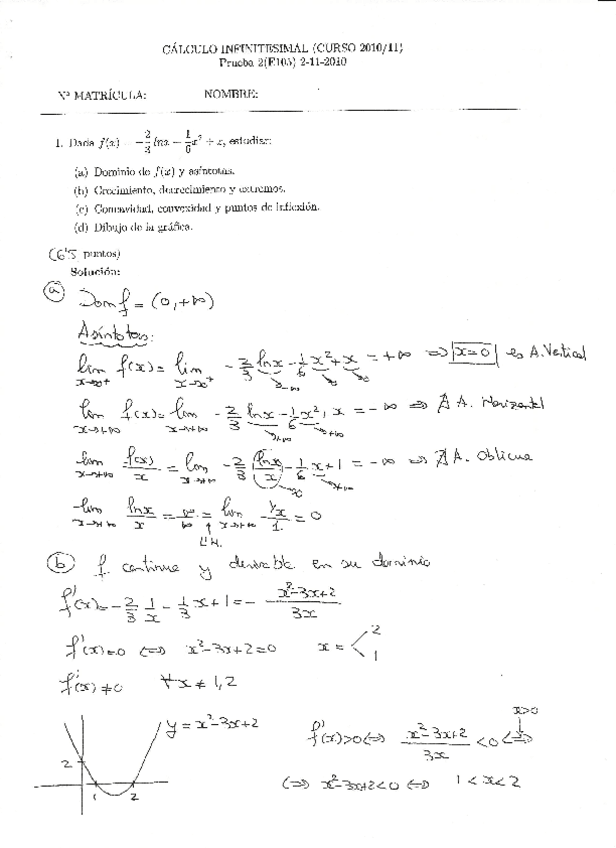 CÁLCULO INFINITESIMAL (CURSO 2010/11)
Prueba 2(E105) 2-11-2010
Nº MATRÍCULA: NOMBRE:
1. Dada f(x) = -2/3 lnx - 1/6 x² + x, estudiar:
(a) Dominio de f(x) y asíntotas.
(b) Crecimiento, decrecimiento y extremos.
(c) Concavidad, convexidad y puntos de inflexión.
(d) Dibujo de la gráfica.
(6'5 puntos)
Solución:
(a) Dom f = (0,+∞)
Asíntotas:
lim x→0⁺ f(x) = lim x→0⁺ -2/3 lnx - 1/6 x² + x = +∞ ⇒ x=0 es A. Vertical
→-∞ →0 →0
lim x→+∞ f(x) = lim x→+∞ -2/3 lnx - 1/6 x² + x = -∞ ⇒ ∄ A. Horizontal
→+∞ →+∞
lim x→+∞ f(x)/x = lim x→+∞ -2/3 (lnx/x) - 1/6 x + 1 = -∞ ⇒ ∄ A. Oblicua
→0 →+∞
lim x→+∞ lnx/x = ∞/∞ = lim x→+∞ (1/x)/1 = 0
L'H.
(b) f continua y derivable en su dominio
f'(x) = -2/3 1/x - 1/3 x + 1 = - (x²-3x+2)/3x
f'(x)=0 ⇔ x²-3x+2=0 x = < 2
1
f'(x) ≠ 0 ∀x ≠ 1,2
y = x²-3x+2
x>0
f'(x)>0 ⇔ (x²-3x+2)/3x < 0 ⇔
2
1 2
⇔ x²-3x+2<0 ⇔ 1<x<2